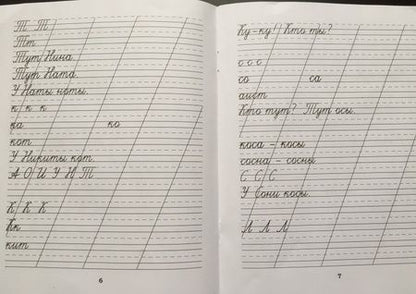 Т Т
Тт
Тут Нина.
Тут Ната.
У Наты ноты.
к к к
ка ко
кот
У Никиты кот.
А О И У Н Т
К К К
Кк
кит
6
Ку-ку! Кто ты?
с с с
со са
аист
Кто тут? Тут осы.
коса - косы
сосна - сосны
С С С
У Сони косы.
Л Л Л
7